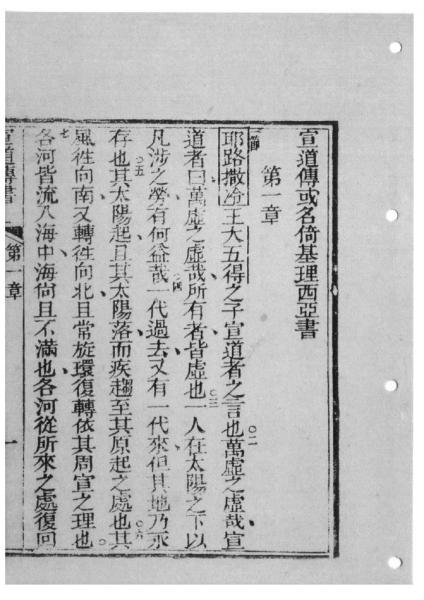 宣道傳或名倚基理西亞書
第一章
一節耶路撒冷王大五得之子宣道者之言也〇二萬虛之虛哉宣
道者曰萬虛之虛哉所有者皆虛也〇三一人在太陽之下以
凡涉之勞有何益哉〇四一代過去又有一代來但其地乃永
存也〇五其太陽起且其太陽落而疾趨至其原起之處也〇六其
風徃向南又轉徃向北且常旋環復轉依其周宣之理也〇
七各河皆流入海中海尙且不滿也各河從所來之處復回
宣道傳書 第一章 一